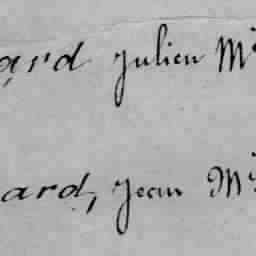 ard Julien M
ard, Jean M